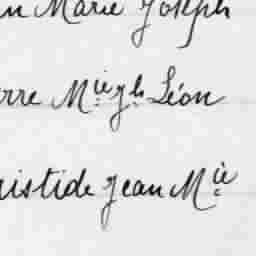 n Marie Joseph
rre Mie Jh Léon
ristide Jean Mie